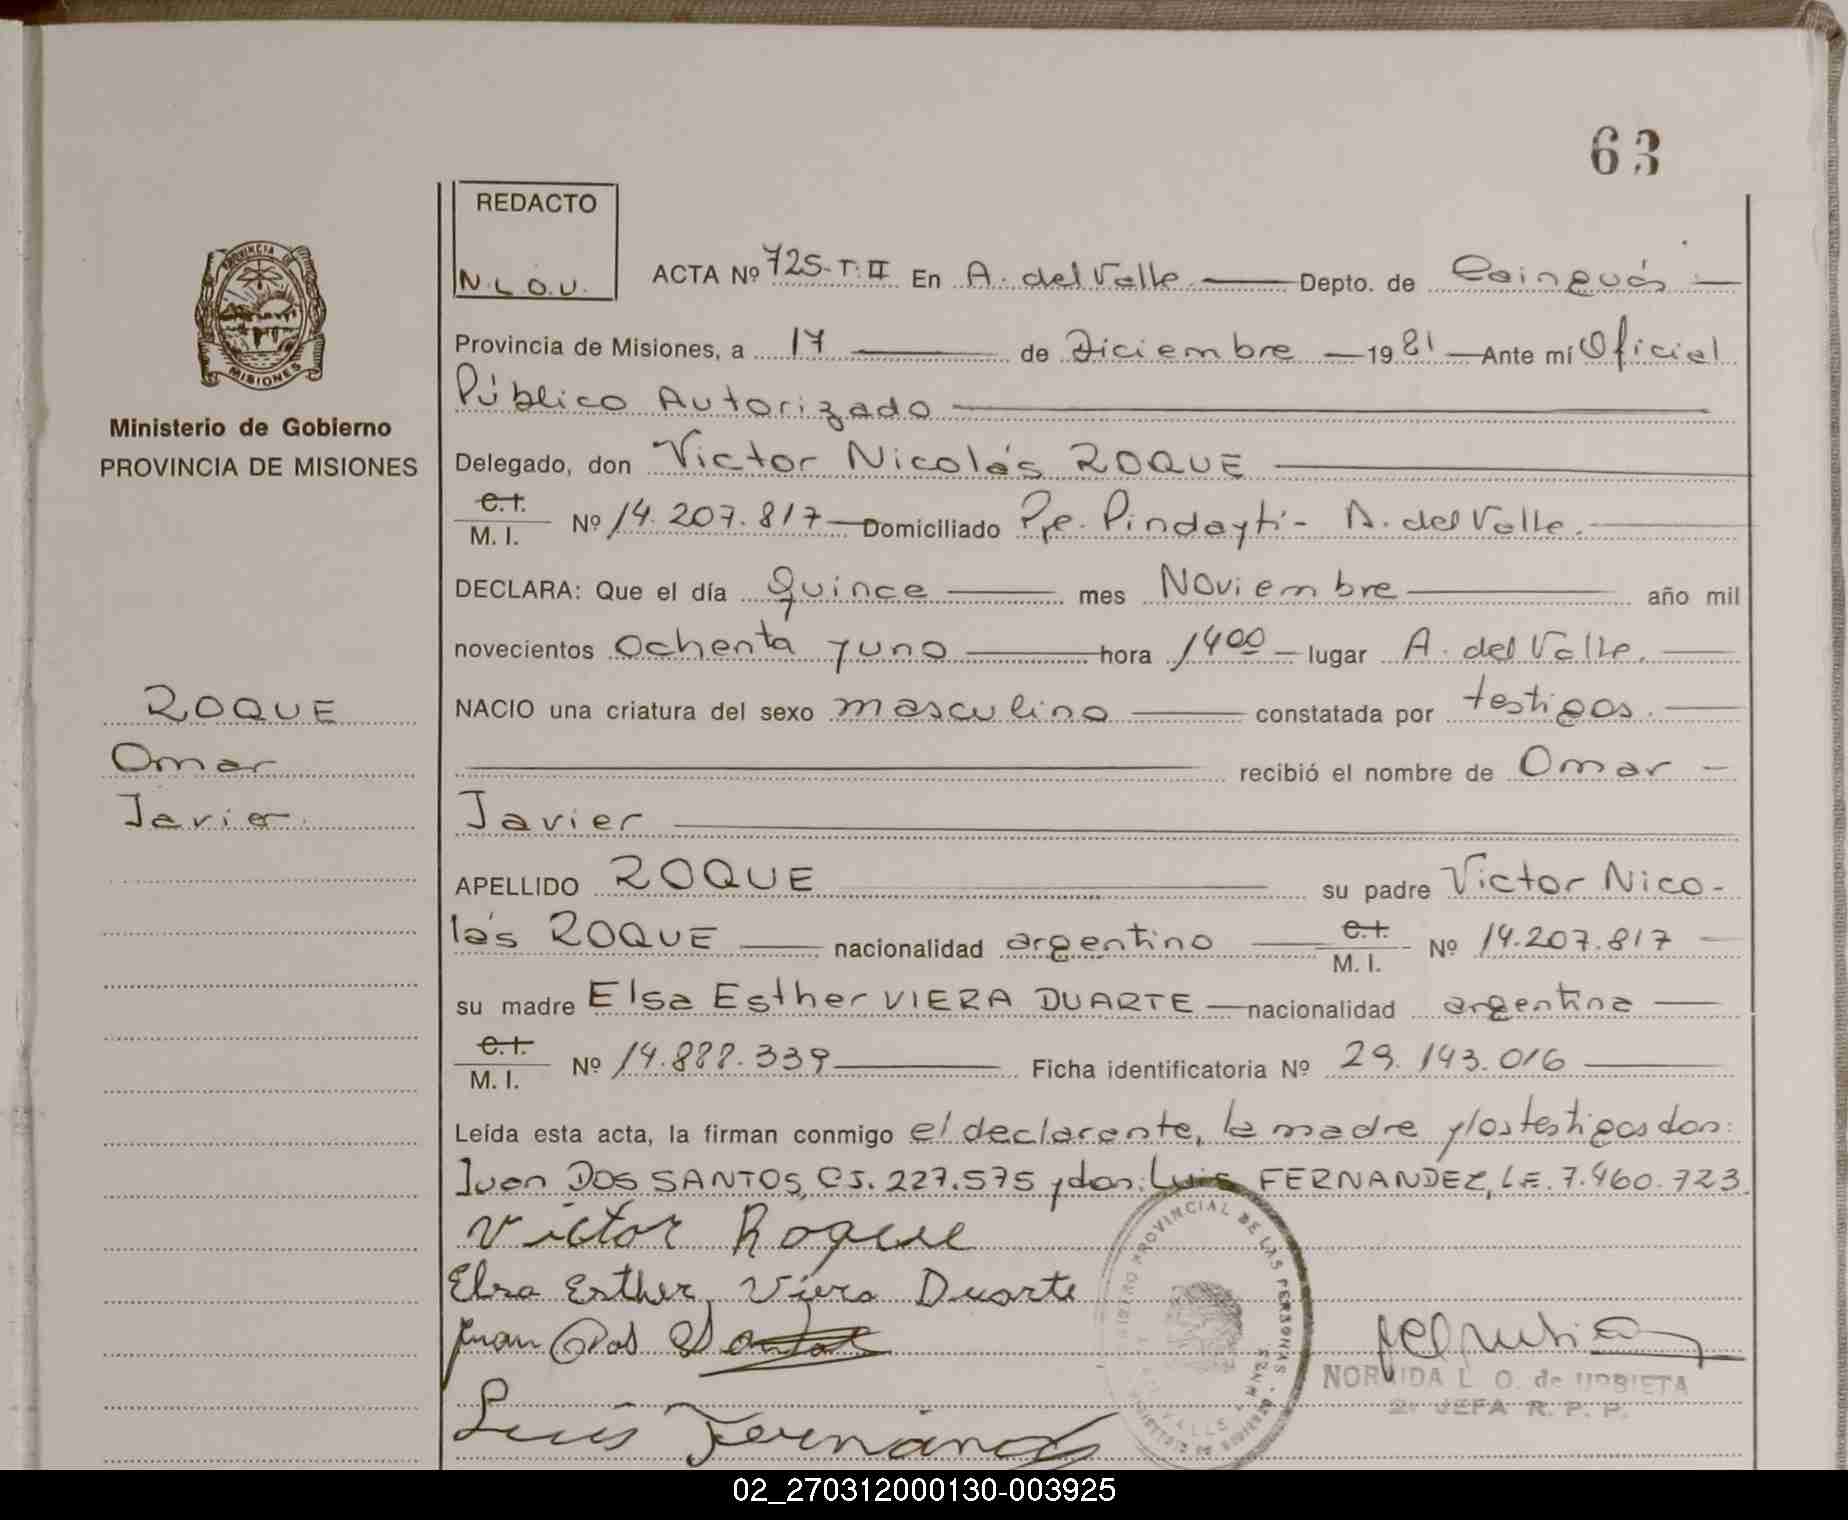 63
REDACTO
N.L.O.U.
ACTA Nº 725-T.II En A. del Valle Depto. de Cainguás
Provincia de Misiones, a 17 de Diciembre 1981 Ante mí Oficial
Público Autorizado
Delegado, don Victor Nicolás ROQUE
C.I.
M. I. Nº 14.207.817 Domiciliado Pje. Pindayti - A. del Valle.
DECLARA: Que el día quince mes Noviembre año mil
novecientos ochenta y uno hora 1400 lugar A. del Valle.
NACIO una criatura del sexo masculino constatada por testigos.
recibió el nombre de Omar
Javier
APELLIDO ROQUE su padre Victor Nico-
lás ROQUE nacionalidad argentino C.I.
M. I. Nº 14.207.817
su madre Elsa Esther VIERA DUARTE nacionalidad argentina
C.I.
M. I. Nº 14.888.339 Ficha identificatoria Nº 29.143.016
Leída esta acta, la firman conmigo el declarante, la madre y los testigos don:
Juan DOS SANTOS, CI. 227.575 y don: Luis FERNANDEZ, L.E. 7.460.723.
Victor Roque
Elsa Esther Viera Duarte
Juan Dos Santos
Luis Fernández
PROVINCIA DE
MISIONES
Ministerio de Gobierno
PROVINCIA DE MISIONES
ROQUE
Omar
Javier
REGISTRO PROVINCIAL DE LAS PERSONAS
NORMIDA L. O. de URBIETA
2ª JEFA R. P. P.
02_270312000130-003925